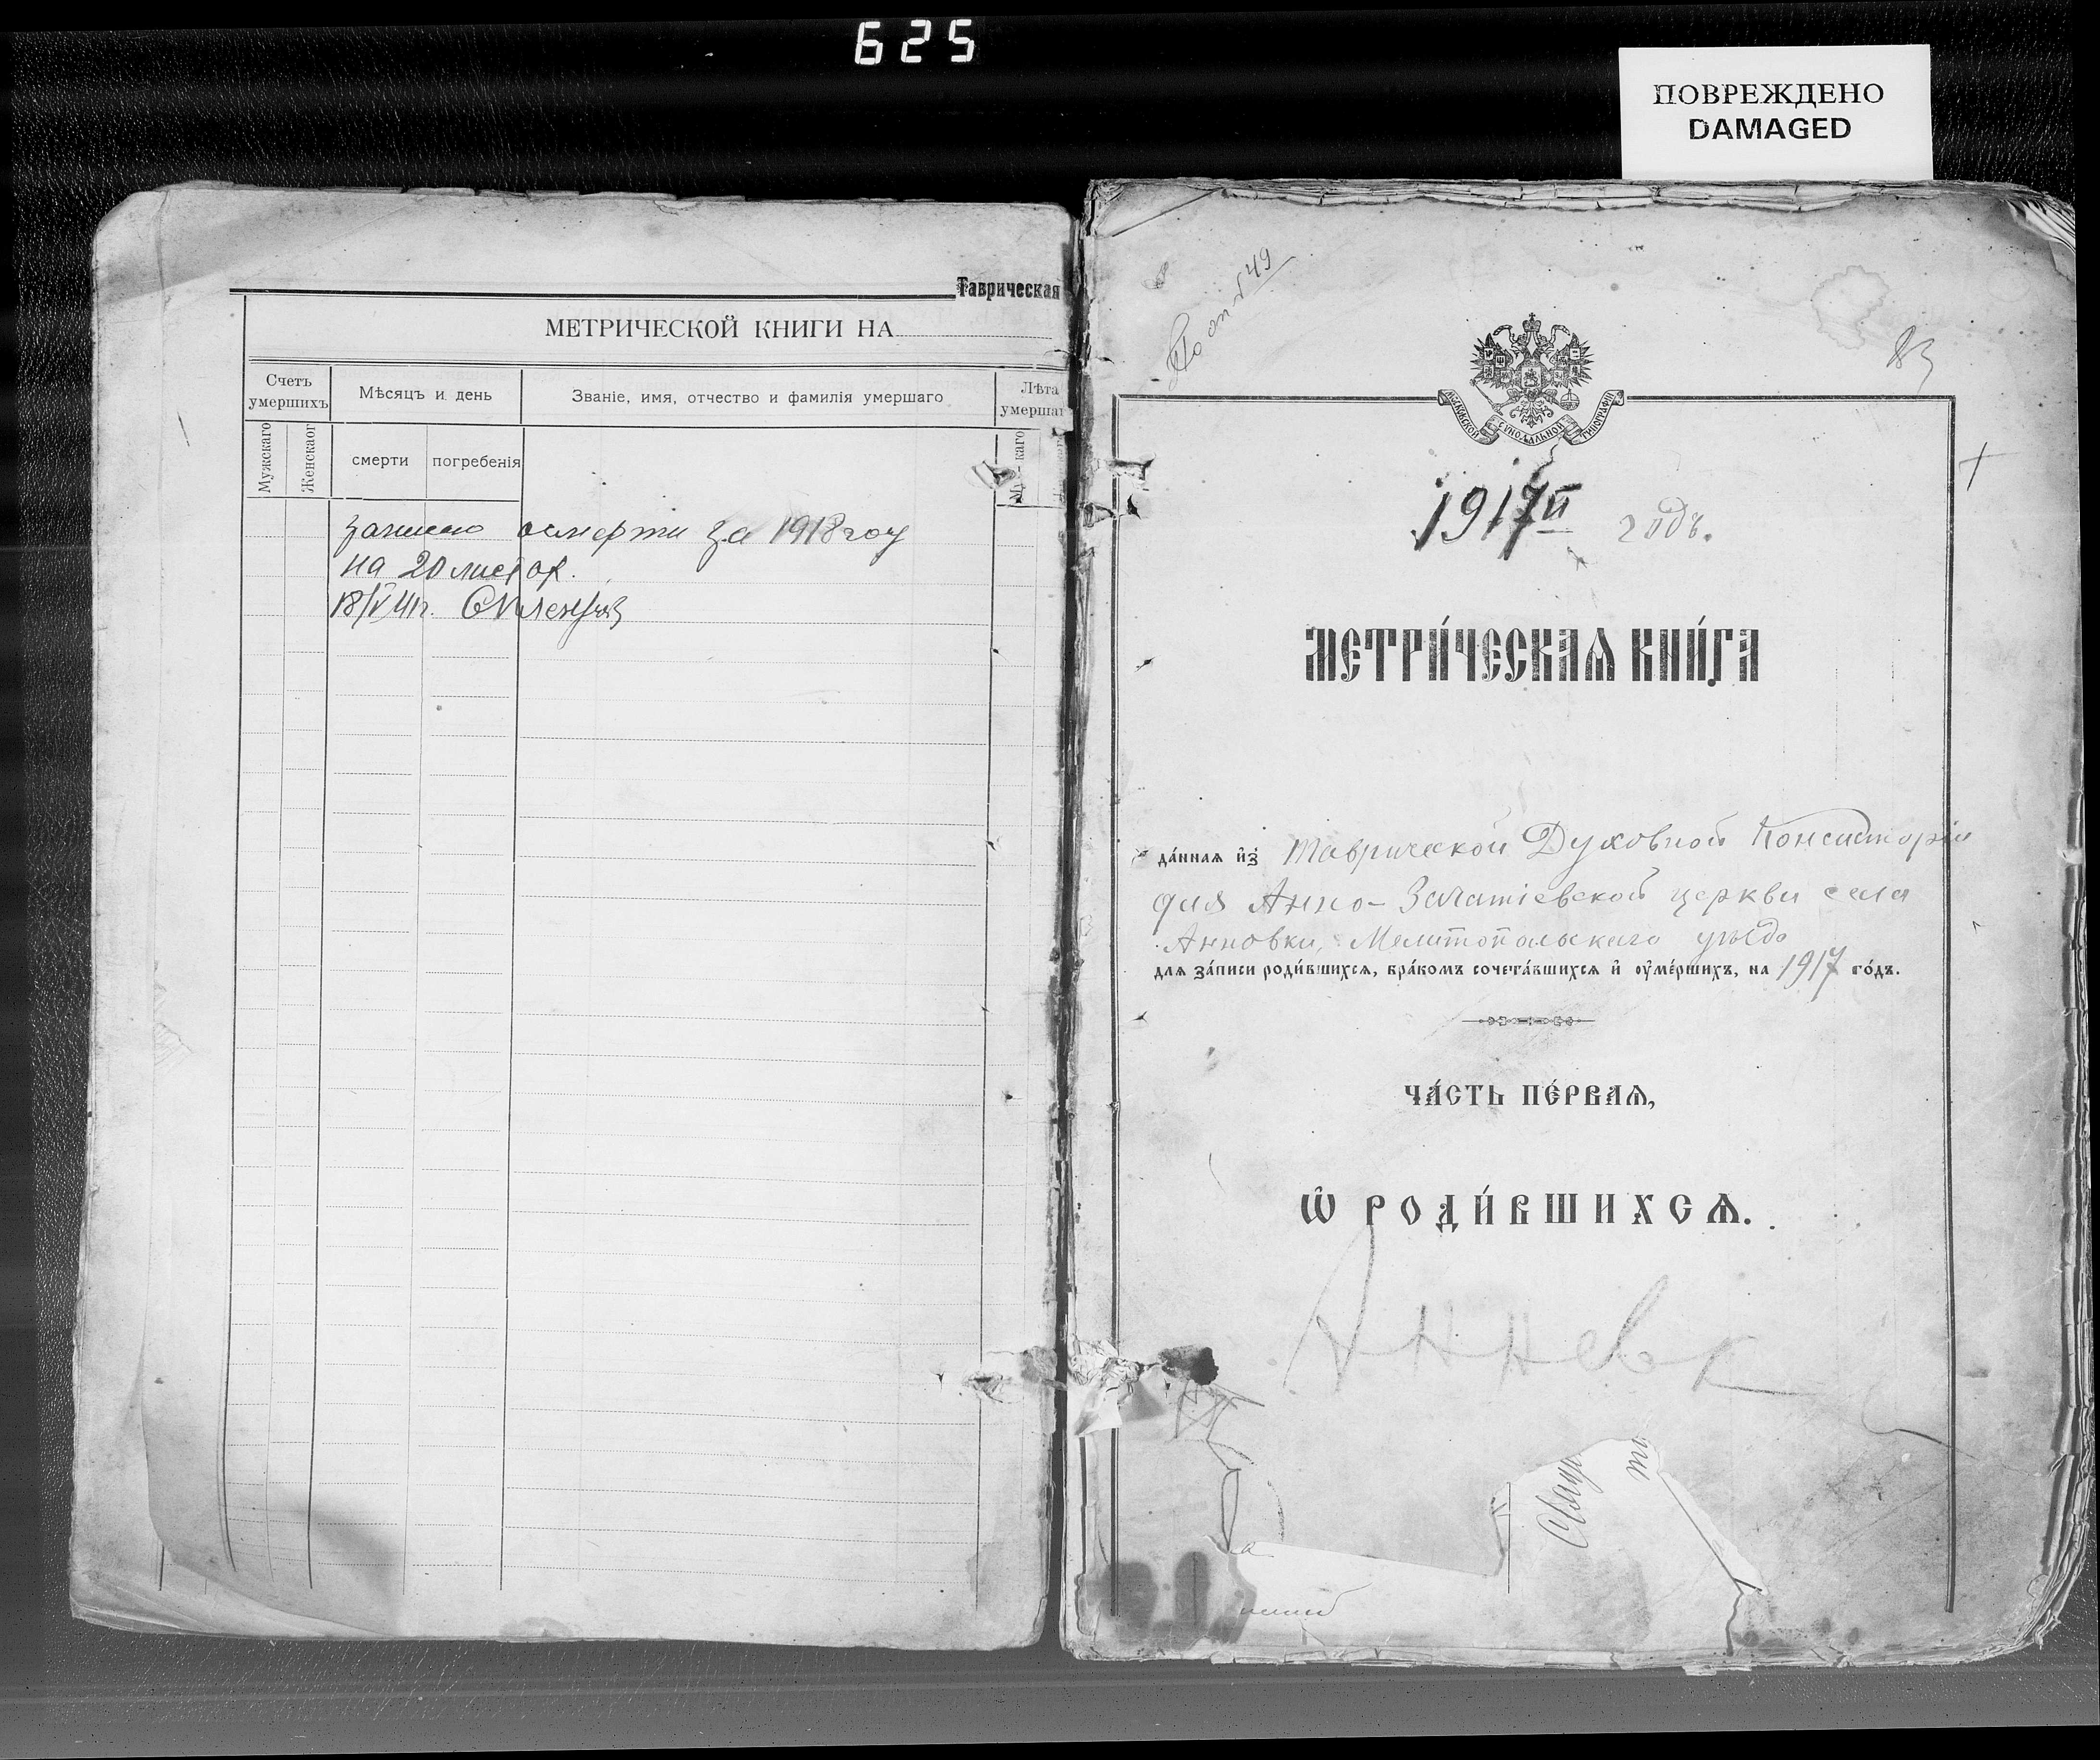 625
ПОВРЕЖДЕНО
DAMAGED
Таврическая
МЕТРИЧЕСКОЙ КНИГИ НА
Счетъ умершихъ
Мѣсяцъ и день
Званіе, имя, отчество и фамилія умершаго
Лѣта умершаг
Мужскаго
Женскаог
смерти
погребенія
каго
за 1918 году
на 20 листах.
18/V 41г.
№ 49
83
МОСКОВСКОЙ СѴНОДАЛЬНОЙ ТИПОГРАФІИ
1917й годъ.
МЕТРИ́ЧЕСКАѦ КНИ́ГА
да́ннаѧ и҆з̾ Таврической Духовной Консисторіи
для Анно-Зачатіевской церкви села
Анновки, Мелитопольскаго уѣзда
длѧ за́писи роди́вшихсѧ, бра́комъ сочета́вшихсѧ и҆ оу҆ме́ршихъ, на 1917 го́дъ.
ЧА́СТЬ ПЕ́РВАѦ,
Ѡ҆ РОДИ́ВШИХСѦ.